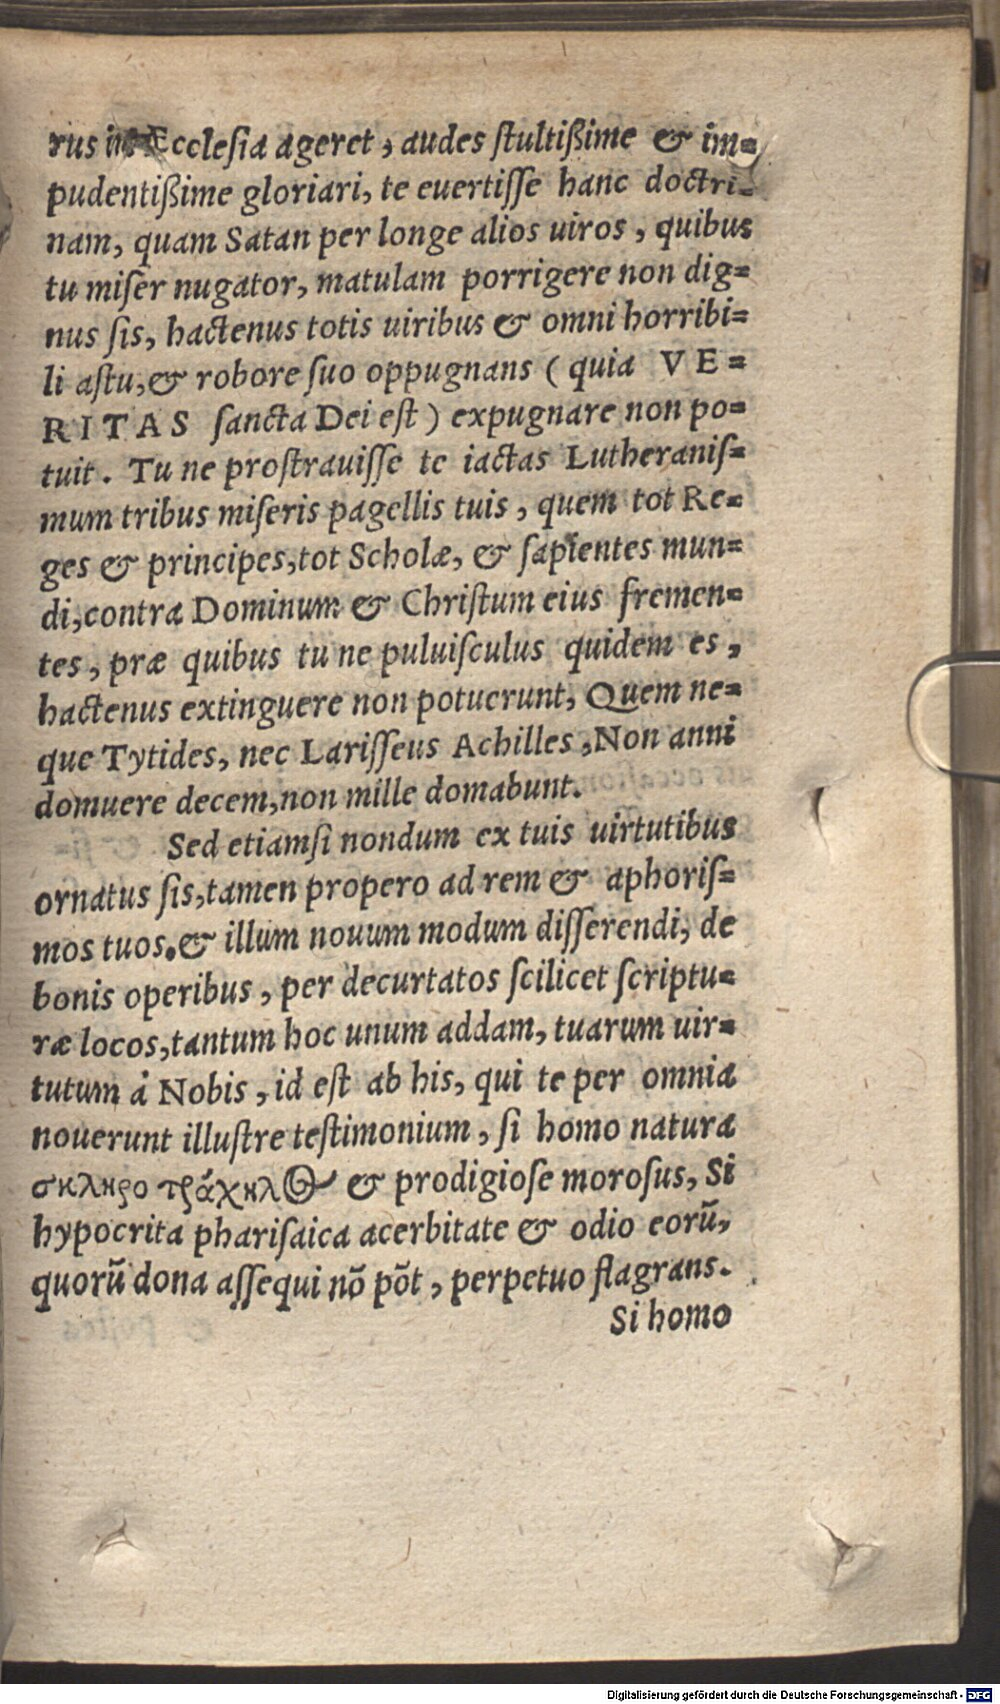 rus in Ecclesia ageret, audes stultißime & im=
pudentißime gloriari, te euertisse hanc doctri=
nam, quam Satan per longe alios uiros, quibus
tu miser nugator, matulam porrigere non dig=
nus sis, hactenus totis uiribus & omni horribi=
li astu, & robore suo oppugnans (quia VE=
RITAS sancta Dei est) expugnare non po=
tuit. Tu ne prostrauisse te iactas Lutheranis=
mum tribus miseris pagellis tuis, quem tot Re=
ges & principes, tot Scholæ, & sapientes mun=
di, contra Dominum & Christum eius fremen=
tes, præ quibus tu ne puluisculus quidem es,
hactenus extinguere non potuerunt, Quem ne=
que Tytides, nec Larisseus Achilles, Non anni
domuere decem, non mille domabunt.
Sed etiamsi nondum ex tuis uirtutibus
ornatus sis, tamen propero ad rem & aphoris=
mos tuos. & illum nouum modum disserendi, de
bonis operibus, per decurtatos scilicet scriptu=
ræ locos, tantum hoc unum addam, tuarum uir=
tutum à Nobis, id est ab his, qui te per omnia
nouerunt illustre testimonium, si homo natura
σκληρο τράχηλος & prodigiose morosus, Si
hypocrita pharisaica acerbitate & odio eorū,
quorū dona assequi nō pōt, perpetuo flagrans.
Si homo
Digitalisierung gefördert durch die Deutsche Forschungsgemeinschaft - DFG